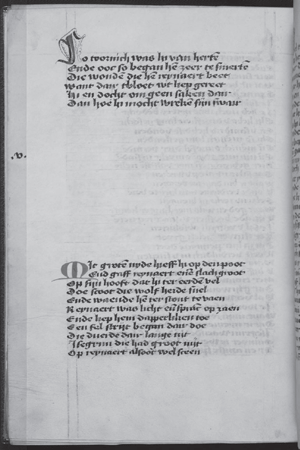 So tornich was hi van herte
Ende oec so began hē zeer te smertē
Die wondē die hē reynaert beet
Want dair tbloet wt liep gereet
Hi en docht om geen saken dair
Dan hoe hi mocht wrekē sijn swair
.v.
Mit grotē nyde hieff hi op den poot
Ende gaff reynaert enē slach groot
Op sijn hooft dat hi ter eerdē vel
Doe scoot die wolf heide snel
Ende waende hē ter stont te vaen
Reynaert was licht en̄ spranc op zaen
Ende liep hem dapperliken toe
Een fel strijt began dair doe
Die duerde dair lange tijt
Isegrim die had groot nijt
Op reynaert alsoet wel sceen